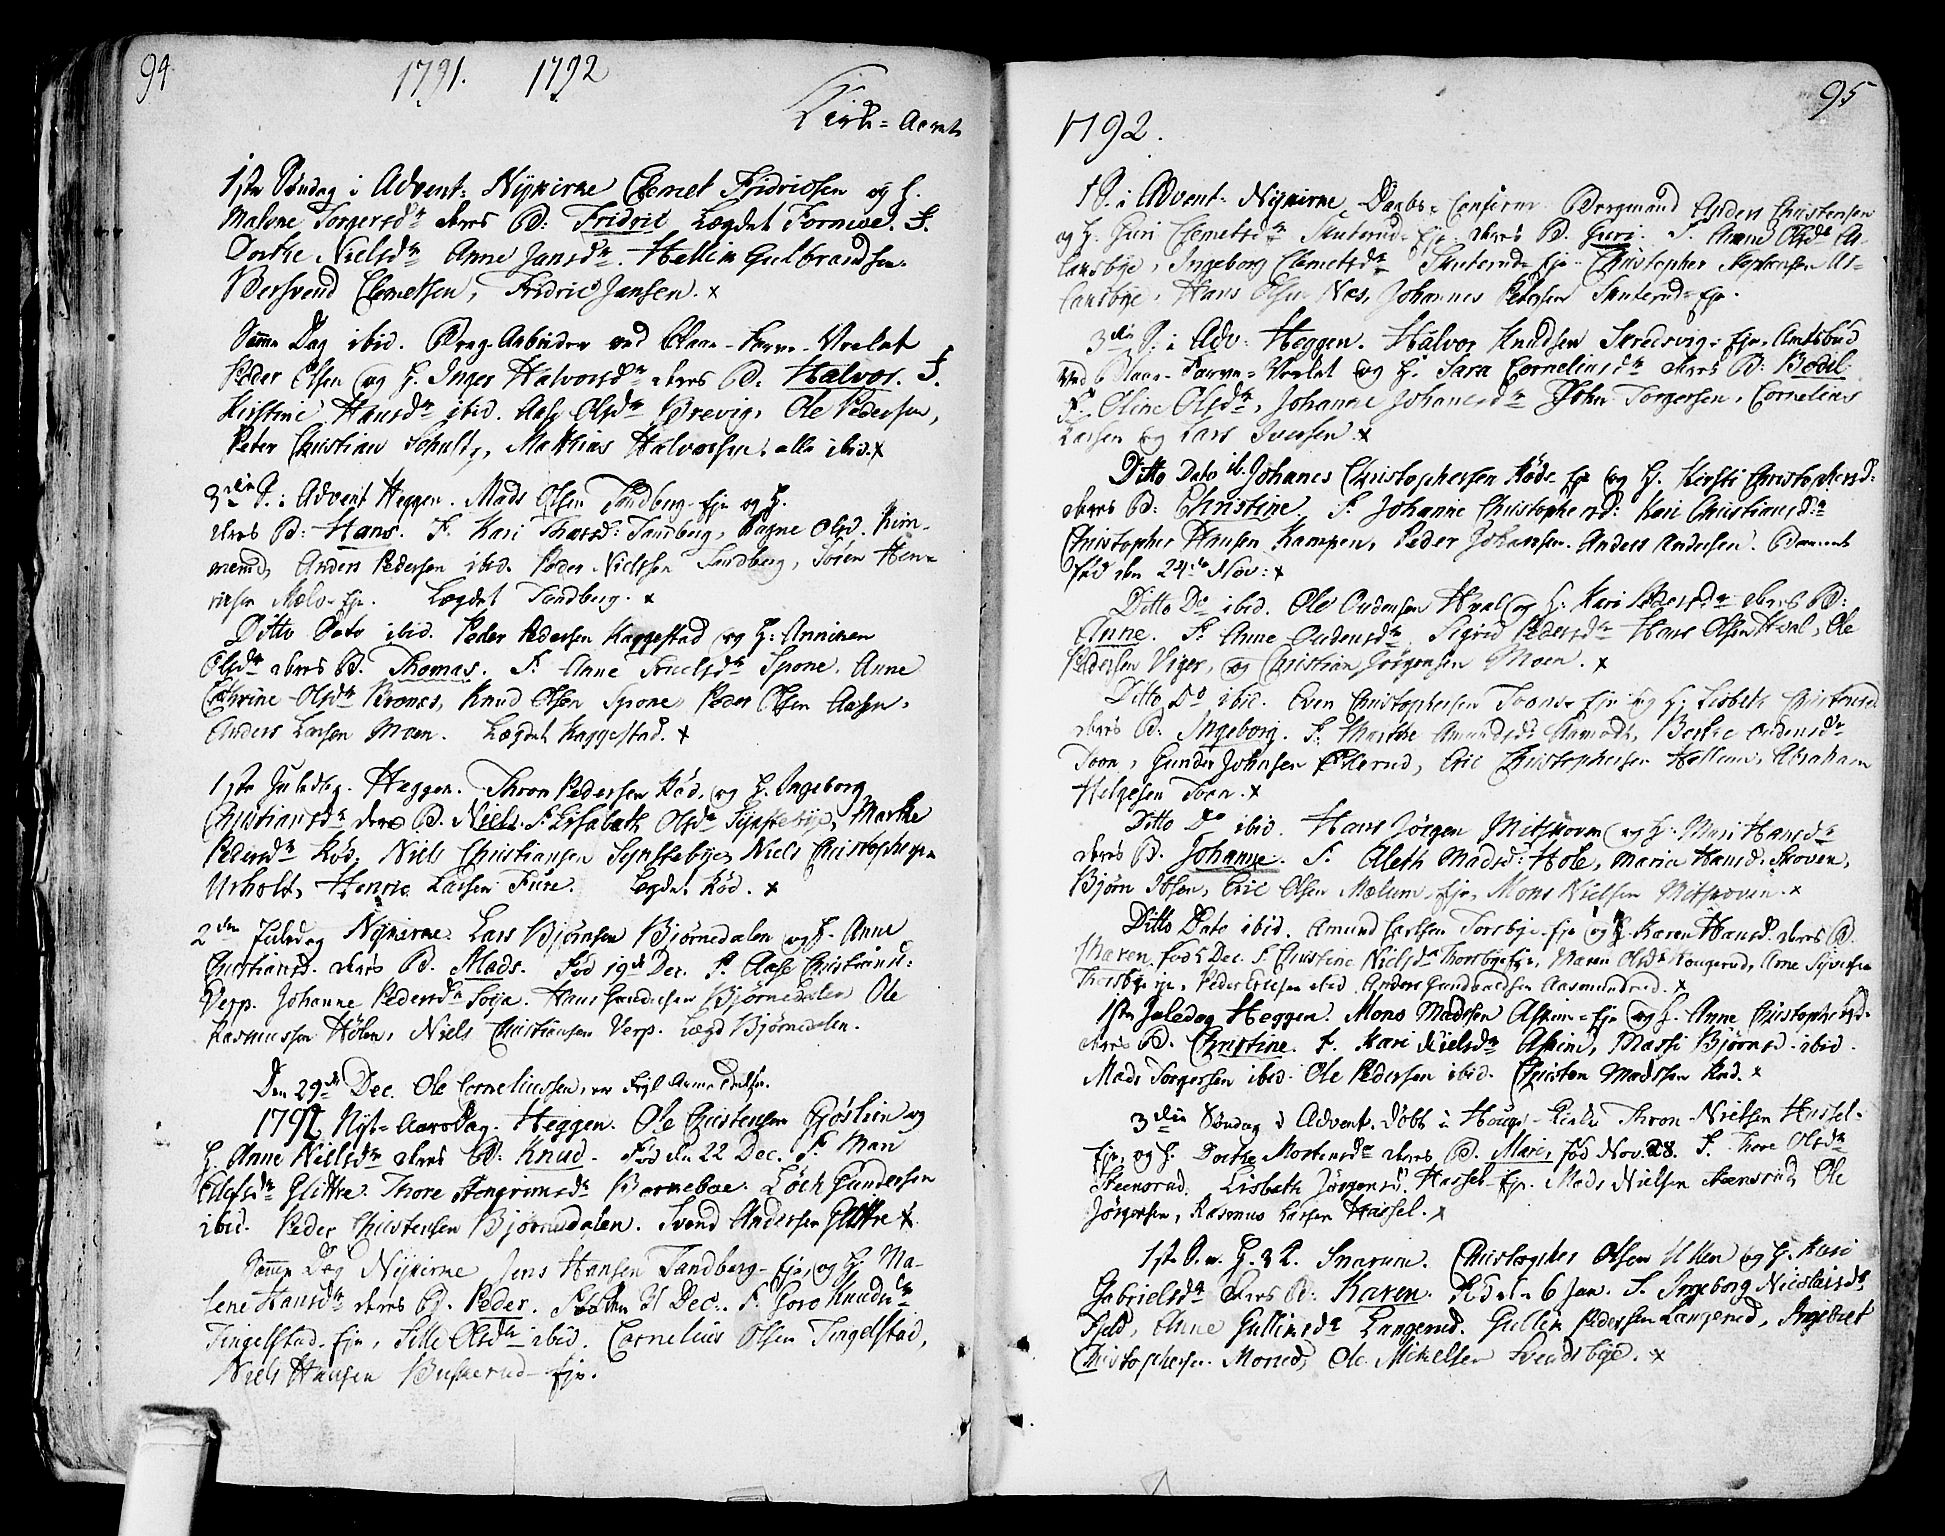 94
1791. 1792
Kirk-Aaret
1ste Søndag i Advent. Nykirke Clemet Fridricsen og H.
Malene Torgersdr deres B: Fridric Lægdet Fornebe. F.
Dorthe Nielsdr Anne Jansdr. Hellik Gulbrandsen.
Bersvend Clemetsen, Fridric Jansen. x
Samme Dag ibid. Brug-Arbeider ved Blaae-Farve-Verket
Peder Olsen og H. Inger Halvorsdr deres B. Halvor. F.
Kirstine Hansdr ibid. Aase Olsdr Brevig, Ole Pedersen,
Peter Christian Schultz, Mathias Halvorsen, alle ibid. x
3die S. i Advent Heggen. Mads Olsen Sandberg-Eje og H.
deres B: Hans. F. Kari Thoresd: Sandberg, Ragne Olsd. Kim-
Anders Pedersen ibid. Peder Nielsen Sandberg, Søren Hen-
ricsen Mælo-Eje. Lægdet Sandberg. x
Ditto Dato ibid. Peder Pedersen Kaggestad og H. Anniken
Olsdr deres B. Thomas. F. Anne Troelsdr Spone. Anne
Cathrine Olsdr Brones, Knud Olsen Spone, Peder Olsen Aasen,
Anders Larsen Moen. Lægdet Kaggestad. x
1ste Juledag. Heggen. Thron Pedersen Kød, og H. Ingeborg
Christiansdr deres B. Niels. F. Lisabeth Olsdr Synstebye, Marthe
Pedersdr Kød, Niels Christiansen Synstebye, Niels Christophersen
Urholt, Henric Larsen Fure. Lægdet Kød. x
2den Juledag Nykirke. Lars Bjørnsen Bjørnedalen og H. Anne
Christiansd. deres B. Mads. Fød 19de Dec. F. Aase Christiansd:
Verp. Johanne Pedersdr Søja. Hans Gundersen Bjørnedalen Ole
Rasmussen Hølen, Niels Christiansen Verp. Lægd Bjørnedalen.
Den 29de Dec. Ole Corneliussen,
1792 Nyt-Aars Dag. Heggen. Ole Christensen Gjøslien og
H. Anne Nielsdr deres B: Knud. Fød den 22 Dec. F. Mari
Elefsdr Glittre. Thore Stengrimsdr Borneboe. Løch Gundersen
ibid. Peder Christensen Bjørnedalen. Svend Andersen Glittre x
Samme Dag Nykirke Jens Hansen Sandberg-Eje, og H. Ma-
lene Hansdr deres B. Peder. Fød den 31 Dec. F. Goro Knudsdr
Tingelstad-Eje, Sille Olsdr ibid. Cornelius Olsen Tingelstad,
Niels Hansen Buskerud-Eje.
95
1792.
1 S. i Advent. Nykirke Daabs-Confirm. Bergmand Anders Christensen
og H. Guri Clemetsdr Skuterud-Eje deres B. Guri. F. Anne Olsdr As-
lansbye, Ingeborg Clemetsdr Skuterud-Eje Christopher Stephansen As-
lansbye, Hans Olsen Næs, Johannes Petersen Skuterud-Eje.
3die S. i Adv: Heggen. Halvor Knudsen Skredsvig-Eje, Amtsbud
ved Blaae-Farve-Verket og H. Sara Corneliusdr deres B: Bodil.
F. Oline Olsdr, Johanne Johansdr John Torgersen, Cornelius
Larsen og Lars Iversen. x
Ditto Dato ib. Johanes Christophersen Køde Eje og H. Kirsti Christophersd:
deres B: Christine. F. Johanne Christophersd: Kari Christiansd:
Christopher Hansen Kampen, Peder Johansen. Anders Andersen. Barnet
fød den 24de Nov: x
Ditto Do ibid. Ole Oudensen Hval og H. Kari Pedersdr deres B:
Anne. F. Anne Oudensdr Sigrid Pedersdr Hans Olsen Hval, Ole
Pedersen Viger, og Christian Jørgensen Moen. x
Ditto Do ibid. Even Christophersen Toens-Eje og H. Lisbeth Christensd
deres B. Ingeborg. F. Marthe Amundsd: Berthe Oudensdr
Toen, Gunder Johnsen EKerud, Eric Christophersen Hellum, Abraham
Helgesen Toen. x
Ditto Do ibid. Hans Jørgen Mitskoven og H. Mari Hansdr
deres B. Johanne. F. Aleth Madsd: Hole, Marie Hansd. Skoven,
Bjørn Ibsen, Eric Olsen Mælum-Eje, Mons Nielsen Mitskoven. x
Ditto Dato ibid. Amund Carlsen Torsbye-Eje og H. Karen Hansd. deres B.
Maren. Fød Dec. F. Christine Nielsdr Thorsbye Eje, Maren Olsdr Kongerud, Arne Syversen
Thorsbye Eje, Peder Ericsen ibid. Anders Gundvaldsen Aasmundrud. x
1ste Juledag Heggen. Mons Madssen Askim-Eje og H. Anne Christophersd.
deres B. Christine. F. Kari Nielsdr Askim, Massi Bjørnsd. ibid.
Mads Torgersen ibid. Ole Pedersen ibid. Christen Madssen Kød. x
3die Søndag i Advent. Døbt i Hougs-Kirke Thron Nielsen Hassel-
Eje, og H. Dorthe Mortensdr deres B. Mari, fød Nov. 28. F. Thore Olsdr
Steensrud. Lisbeth Jørgensd. Hassel-Eje. Mads Nielsen Steensrud, Ole
Jørgensen, Rasmus Larsen Hassel. x
1ste S. e. H. 3 K. Snarum. Christopher Olsen Ullen og H. Kari
Gabrielsdr deres B: Karen. Fød den 6 Jan. F. Ingeborg Nicolaisdr
Fjeld, Anne Gulliksdr Langerud. Gullik Pedersen Langerud, Ingebret
Christophersen Morud, Ole Mikelsen Svendsbye. x